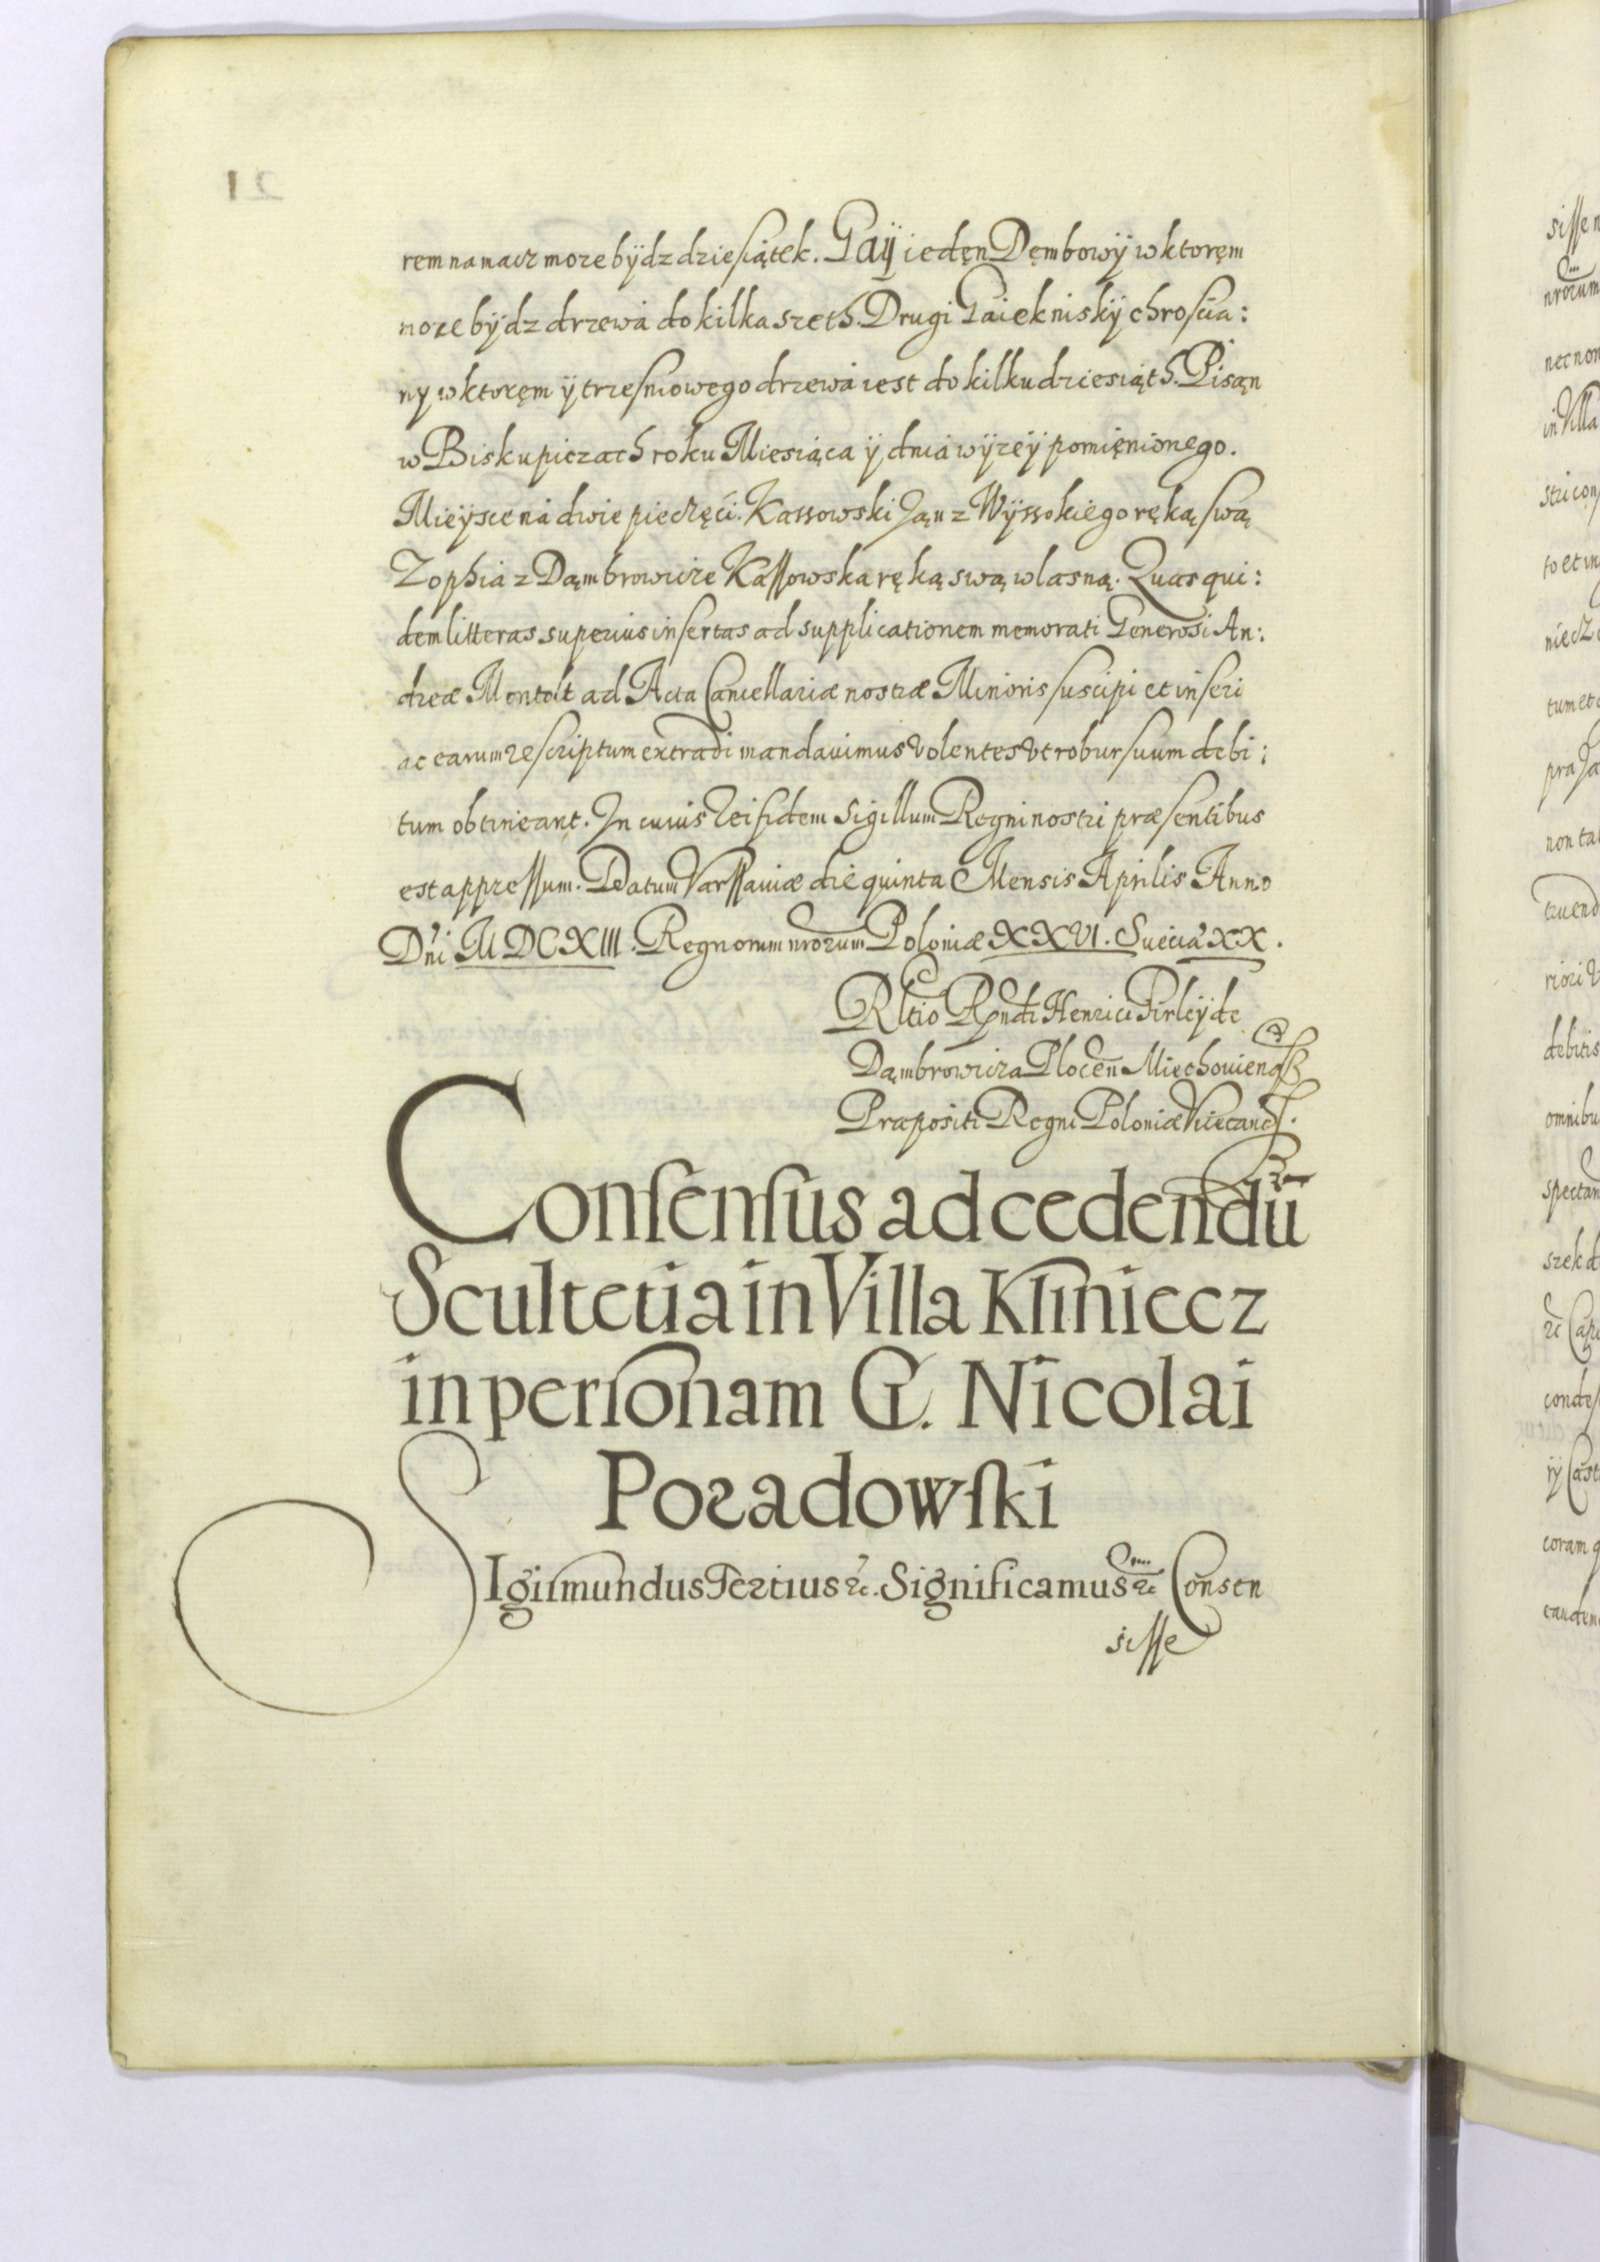 rem na nacz moze bÿdz dziesiątek. Gaÿ iedęn Dęmbowÿ w ktoręm
moze bÿdz drzewa do kilka szeth. Drugi Gaiek niskÿ chroscia:
ny w ktoręm ÿ trzesniowego drzewa iest do kilkudziesiąth. Pisąn
w Biskupiczach roku Miesiąca ÿ dnia wÿzeÿ pomięnionego.
Mieÿsce na dwie pieczęci. Kassowski Jąn z Wÿssokiego ręką swą
Zophia z Dąmbrowicze Kassowska ręką swą wlasną. Quas qui:
dem litteras superius insertas ad supplicationem memorati Generosi An:
dreæ Montolt ad Acta Cancellariæ nostræ Minoris suscipi et inseri
ac earum rescriptum extradi mandauimus Volentes Vt robur suum debi:
tum obtineant. In cuius rei fidem Sigillum Regni nostri præsentibus
est appressum. Datum Varssauiæ die quinta Mensis Aprilis Anno
Dni MDCXIII. Regnorum nrorum Poloniæ XXVI. Sueciæ XX.
Rltio Rndi Henrici Firleÿ de
Dąmbrowicza Plocen Miechouien
Præpositi Regni Poloniæ Vicecanc.
Consensus ad cedendū
Scultetia in Villa Kliniecz
in personam G. Nicolai
Poradowski
SIgismundus Tertius etc. Significamus etc Consen
sisse
21